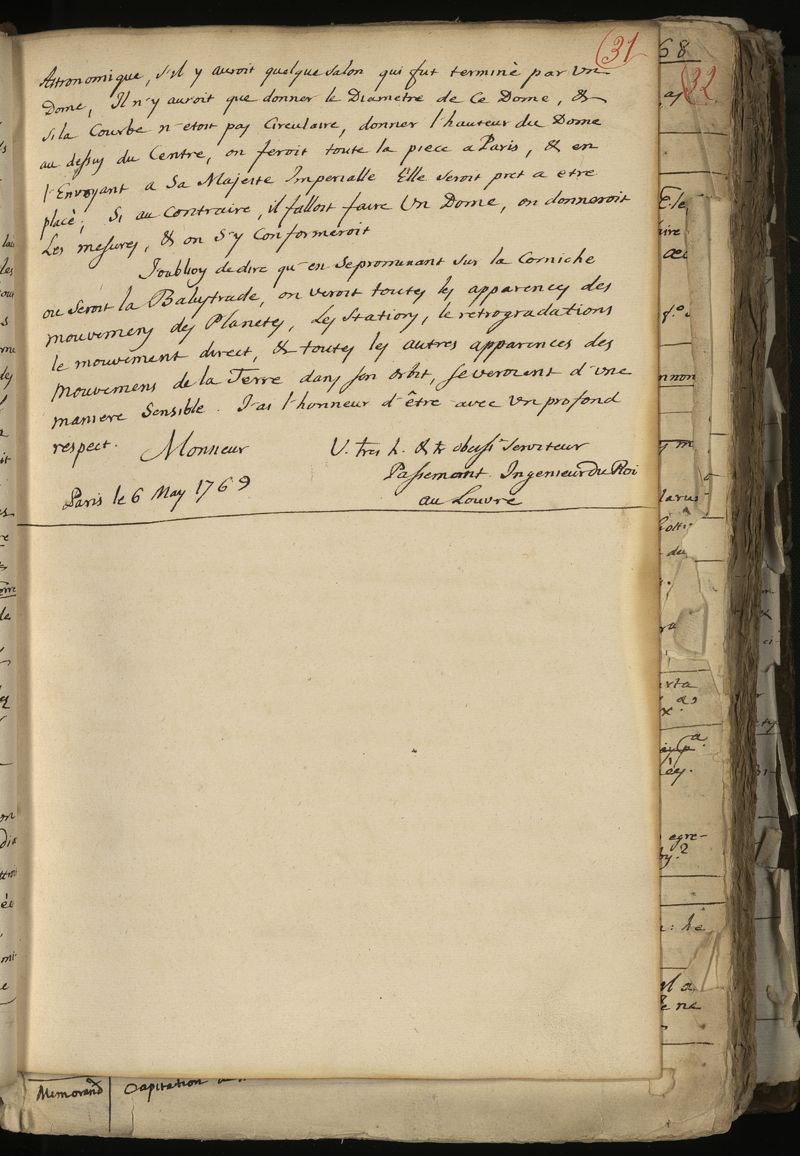 31
Astronomique, s'il y auroit quelque salon qui fut terminè par Un
Dome, Il n'y auroit que donner le Diametre de Ce Dome, &
si la Courbe n'etoit pas Circulaire, donner l'hauteur du Dome
au dessus du Centre, on feroit toute la piece a Paris, & en
l'Envoyant a Sa Majeste Imperialle Elle seroit pret a etre
placè; Si au Contraire, il falloit faire Un Dome, on donneroit
Les mesures, & on s'y Conformeroit
J'oublioy de dire qu'en se promenant sur la Corniche
ou seroit la Balustrade, on veroit toutes les apparences des
mouvemens des Planetes, Les Stations, le retrogradations
le mouvement direct, & toutes les autres apparences des
Mouvemens de la Terre dans son Orbit, se veroient d'une
maniere Sensible. J'ai l'honneur d'être avec Un profond
respect. Monsieur
V. tres h. & tr obeisst Serviteur
Passemant Ingenieur Du Roi
au Louvre
Paris le 6 May 1769
68
32
Memorand
Capitation